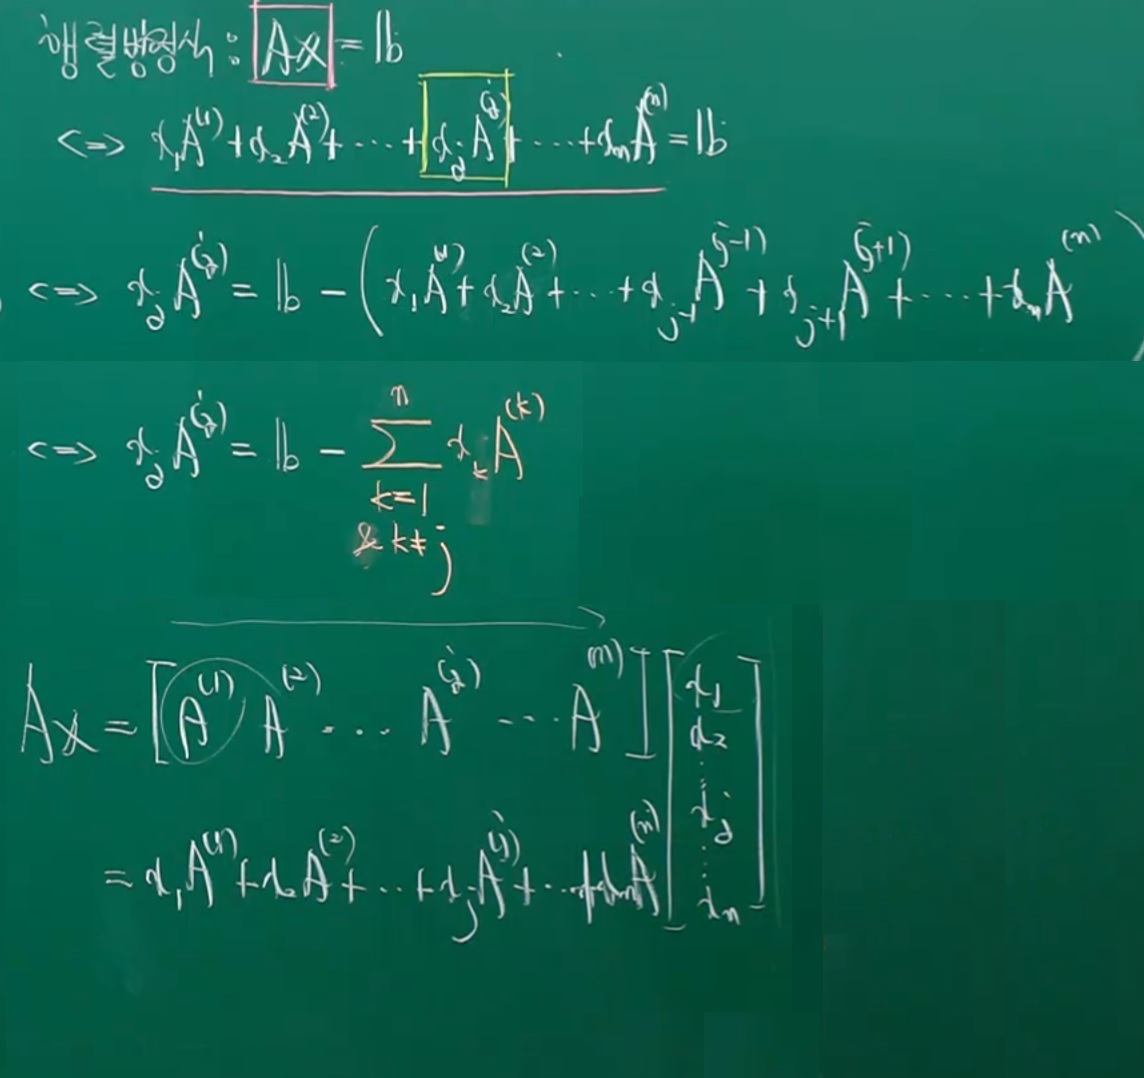 행렬방정식 : Ax = b
<=> x₁A⁽¹⁾ + x₂A⁽²⁾ + ⋯ + xⱼA⁽ʲ⁾ + ⋯ + xₙA⁽ⁿ⁾ = b
<=> xⱼA⁽ʲ⁾ = b - (x₁A⁽¹⁾ + x₂A⁽²⁾ + ⋯ + xⱼ₋₁A⁽ʲ⁻¹⁾ + xⱼ₊₁A⁽ʲ⁺¹⁾ + ⋯ + xₙA⁽ⁿ⁾)
<=> xⱼA⁽ʲ⁾ = b - ∑ₖ₌₁ⁿ xₖA⁽ᵏ⁾
& k≠j
Ax = [A⁽¹⁾ A⁽²⁾ ⋯ A⁽ʲ⁾ ⋯ A⁽ⁿ⁾] [x₁ x₂ ⋮ xⱼ ⋮ xₙ]
= x₁A⁽¹⁾ + x₂A⁽²⁾ + ⋯ + xⱼA⁽ʲ⁾ + ⋯ + xₙA⁽ⁿ⁾